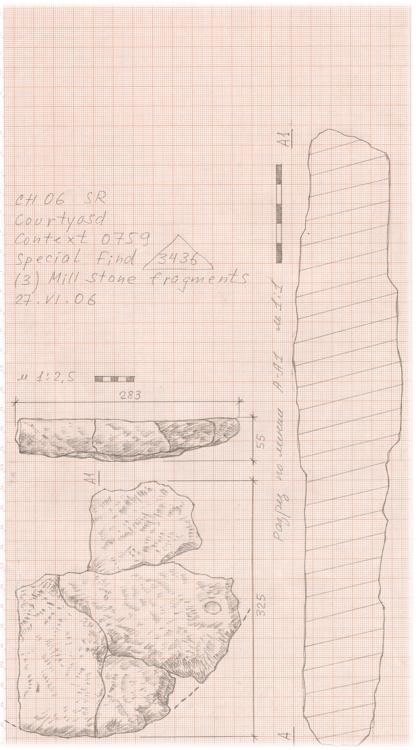 CH 06 SR
Courtyard
Context 0759
Special Find 3436
(3) Mill stone fragments
27.VI.06
м 1:2,5
283
55
A1
325
A1
Разрез по линии A-A1 м 1:1
A